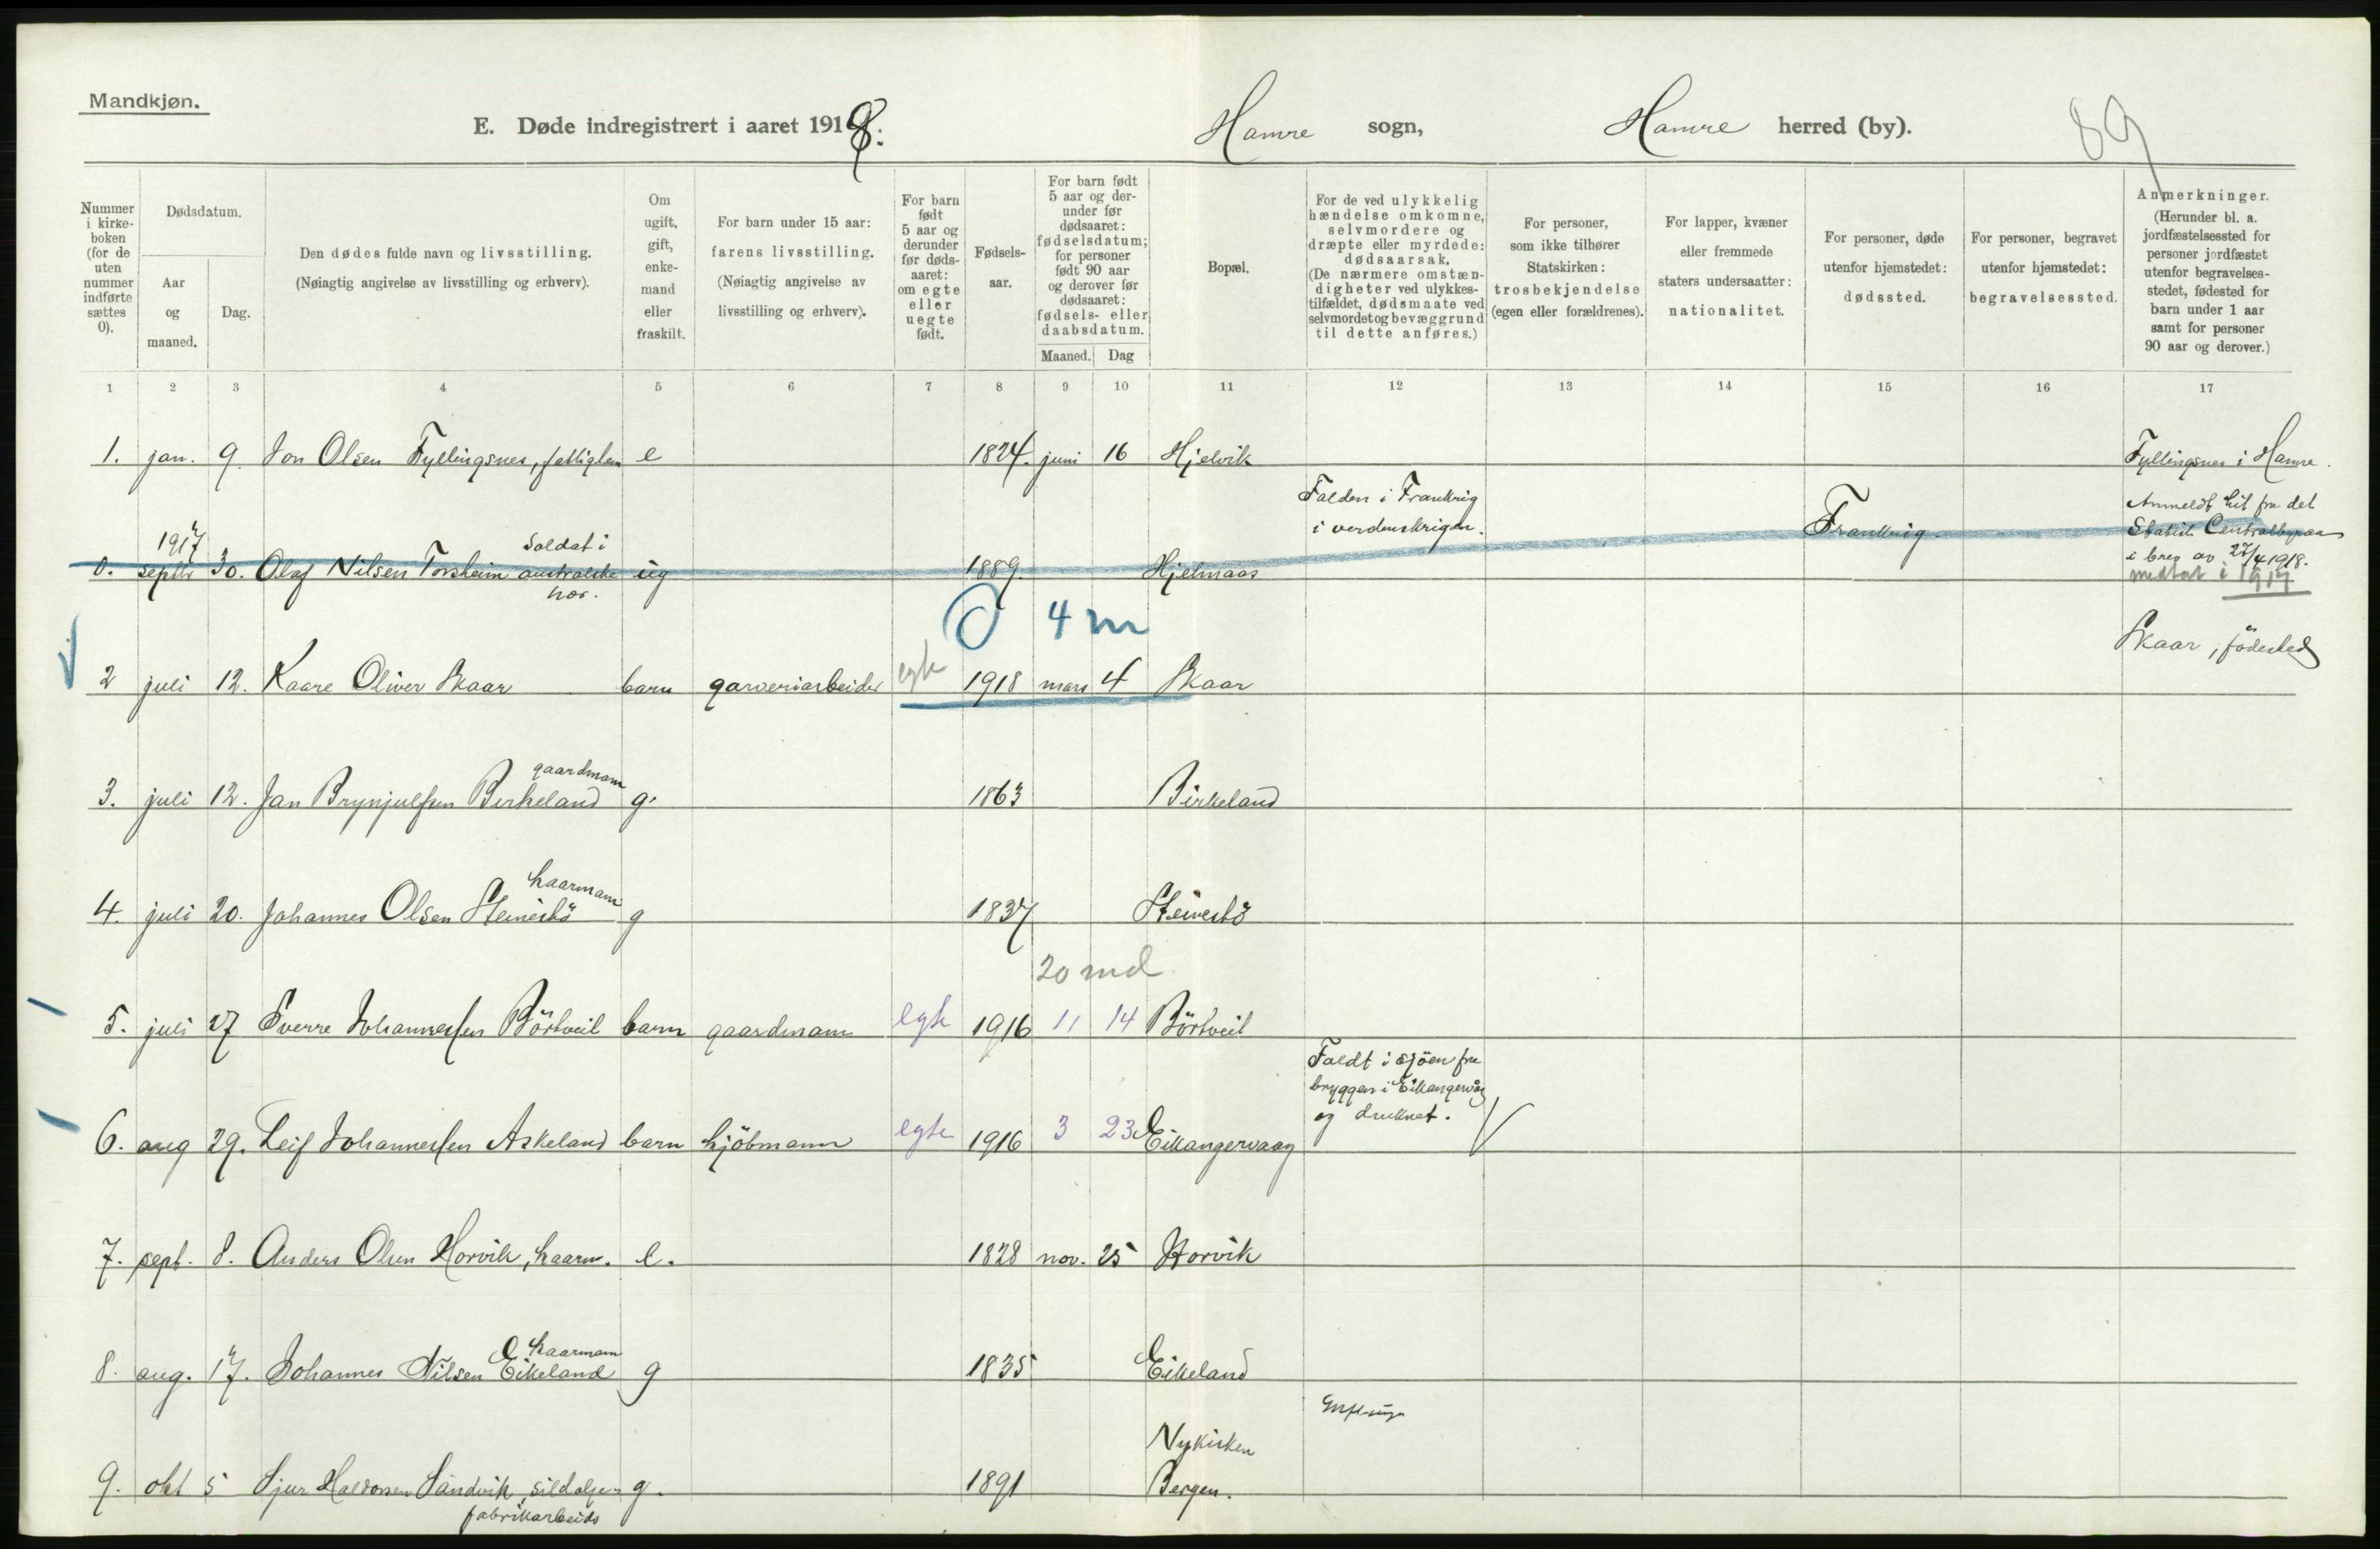 Mandkjøn.
E. Døde indregistrert i aaret 1918. Hamre sogn, Hamre herred (by). 89
Nummer i kirke-boken (for de uten nummer indførte sættes 0).
Dødsdatum.
Aar og maaned.
Dag.
Den dødes fulde navn og livsstilling.
(Nøiagtig angivelse av livsstilling og erhverv).
Om ugift, gift, enke-mand eller fraskilt.
For barn under 15 aar:
farens livsstilling.
(Nøiagtig angivelse av livsstilling og erhverv).
For barn født 5 aar og derunder før døds-aaret: om egte eller uegte født.
Fødsels-aar.
For barn født 5 aar og der-under før dødsaaret: fødselsdatum; for personer født 90 aar og derover før dødsaaret: fødsels- eller daabsdatum.
Maaned. Dag
Bopæl.
For de ved ulykkelig hændelse omkomne, selvmordere og dræpte eller myrdede: dødsaarsak.
(De nærmere omstæn-digheter ved ulykkes-tilfældet, dødsmaate ved selvmord et og bevæggrund til dette anføres.)
For personer, som ikke tilhører Statskirken: trosbekjendelse (egen eller forældrenes).
For lapper, kvæner eller fremmede staters undersaatter: nationalitet.
For personer, døde utenfor hjemstedet: dødssted.
For personer, begravet utenfor hjemstedet: begravelsessted.
Anmerkninger.
(Herunder bl. a. jordfæstelsessted for personer jordfæstet utenfor begravelses-stedet, fødested for barn under 1 aar samt for personer 90 aar og derover.)
1 2 3 4 5 6 7 8 9 10 11 12 13 14 15 16 17
1. jan. 9. Jon Olsen Fyllingsnes, fattiglem e 1824. juni 16 Hjelvik Fyllingsnes i Hamre.
0. 1917 septbr 30. Olaf Nilsen Torsheim Soldat i australske hær. ug 1889. Hjelmaas Falden i Frankrig i verdenskrigen. Frankrig Anmeldt hit fra det Statist. Centralbyraa i brev av 27/4 1918. medtat i 1917
0 4 m
2 juli 12. Kaare Oliver Skaar barn garveriarbeider egte 1918 mars 4 Skaar Skaar, födested
3. juli 12. Jan Brynjulfsen Birkeland gaardmann g. 1863 Birkeland
4. juli 20. Johannes Olsen Steinestö kaarmann g 1837 Steinestö
20 md
5. juli 27 Sverre Johannessen Börtveit barn gaardmann egte 1916 11 14 Börtveit
6. aug 29. Leif Johannessen Askeland barn kjöbmann egte 1916 3 23 Eikangervaag Faldt i sjöen fra bryggen i Eikangervåg og druknet.
7. sept. 8. Anders Olsen Horvik, kaarm. e. 1828 nov. 25 Horvik
8. aug. 17. Johannes Nilsen Eikeland kaarmann g 1835 Eikeland
9. okt 5 Sjur Haldorsen Sandvik, sildolje- fabrikarbeider g. 1891 Nykirken Bergen.